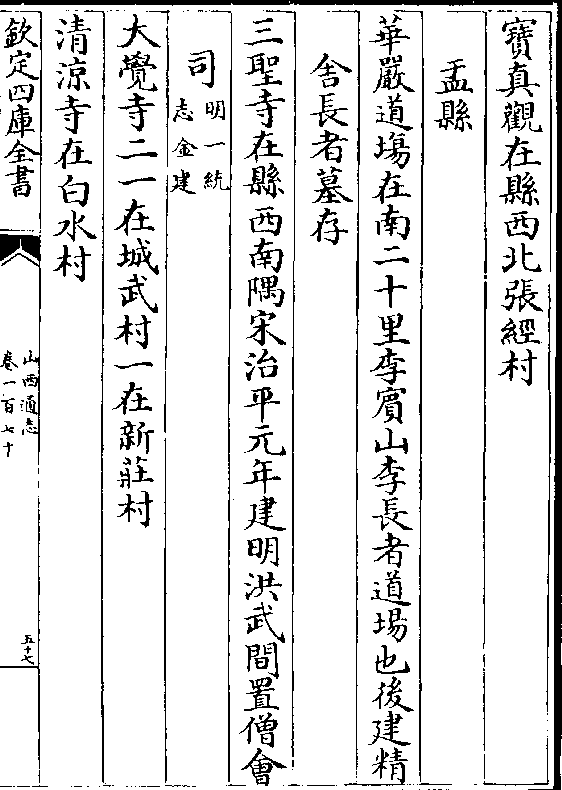 寶真觀在縣西北張經村
盂縣
華嚴道塲在南二十里李賔山李長者道場也後建精
舍長者墓存
三聖寺在縣西南隅宋治平元年建明洪武間置僧會
司明一統
志金建
大覺寺二一在城武村一在新莊村
清涼寺在白水村
欽定四庫全書
山西通志
卷一百七十
五十七